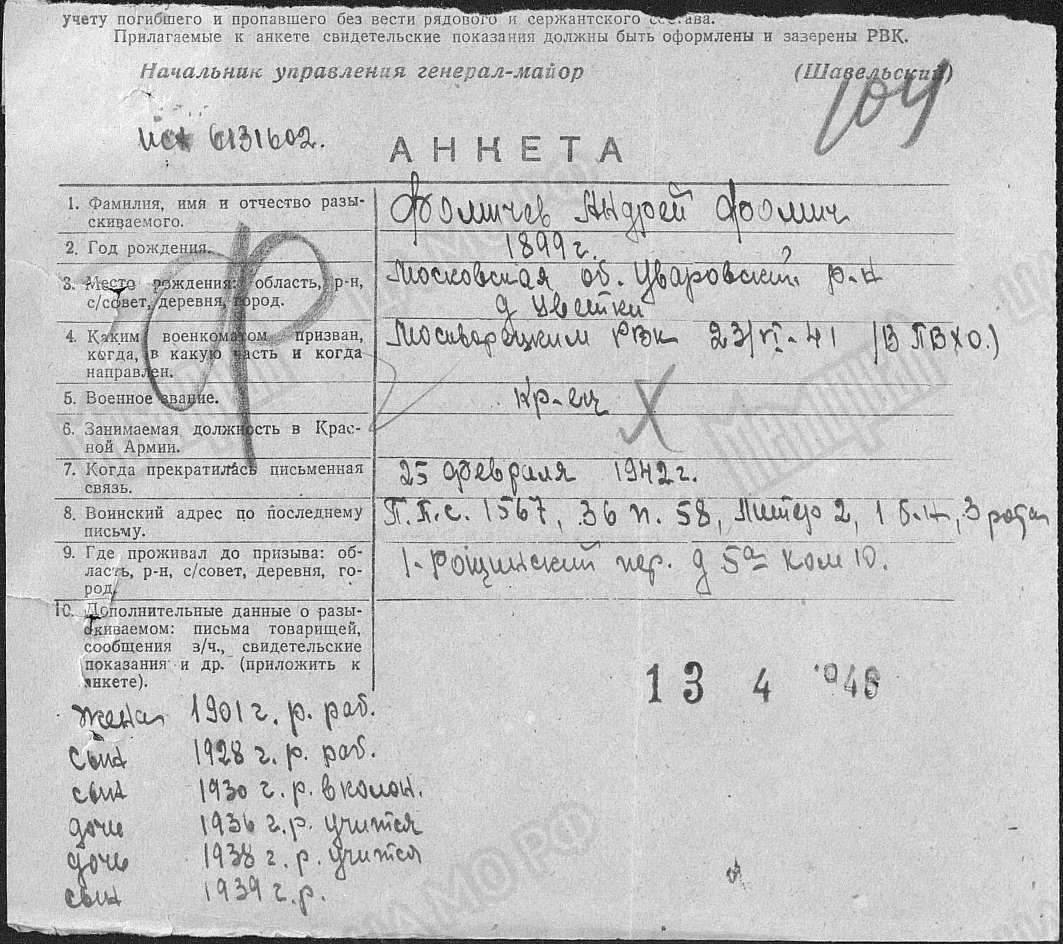 учету погибшего и пропавшего без вести рядового и сержантского состава.
Прилагаемые к анкете свидетельские показания должны быть оформлены и заверены РВК.
Начальник управления генерал-майор (Шавельский)
104
исх 6131602.
АНКЕТА
1. Фамилия, имя и отчество разы-
скиваемого.
Фомичев Андрей Фомич
2. Год рождения.
1899 г.
3. Место рождения: область, р-н,
с/совет, деревня, город.
Московская об. Уваровский р-н
д Цветки
4. Каким военкоматом призван,
когда, в какую часть и когда
направлен.
Москварецким РВК 23/VI-41 /В ПВХО.)
5. Военное звание.
кр-ец
6. Занимаемая должность в Крас-
ной Армии.
7. Когда прекратилась письменная
связь.
25 февраля 1942 г.
8. Воинский адрес по последнему
письму.
П.П.с. 1567, 36 п. 58, Литер 2, 1 б-н, 3 рота
9. Где проживал до призыва: об-
ласть, р-н, с/совет, деревня, го-
род.
1-Рощинский пер. д 5а ком 10.
10. Дополнительные данные о разы-
скиваемом: письма товарищей,
сообщения з/ч., свидетельские
показания и др. (приложить к
анкете).
13 4 1946
жена 1901 г. р. раб.
сын 1928 г. р. раб.
сын 1930 г. р. в колон.
дочь 1936 г. р. учится
дочь 1938 г. р. учится
сын 1939 г. р.
Мемориал
Мемориал
ЦА МО РФ
ЦА МО РФ